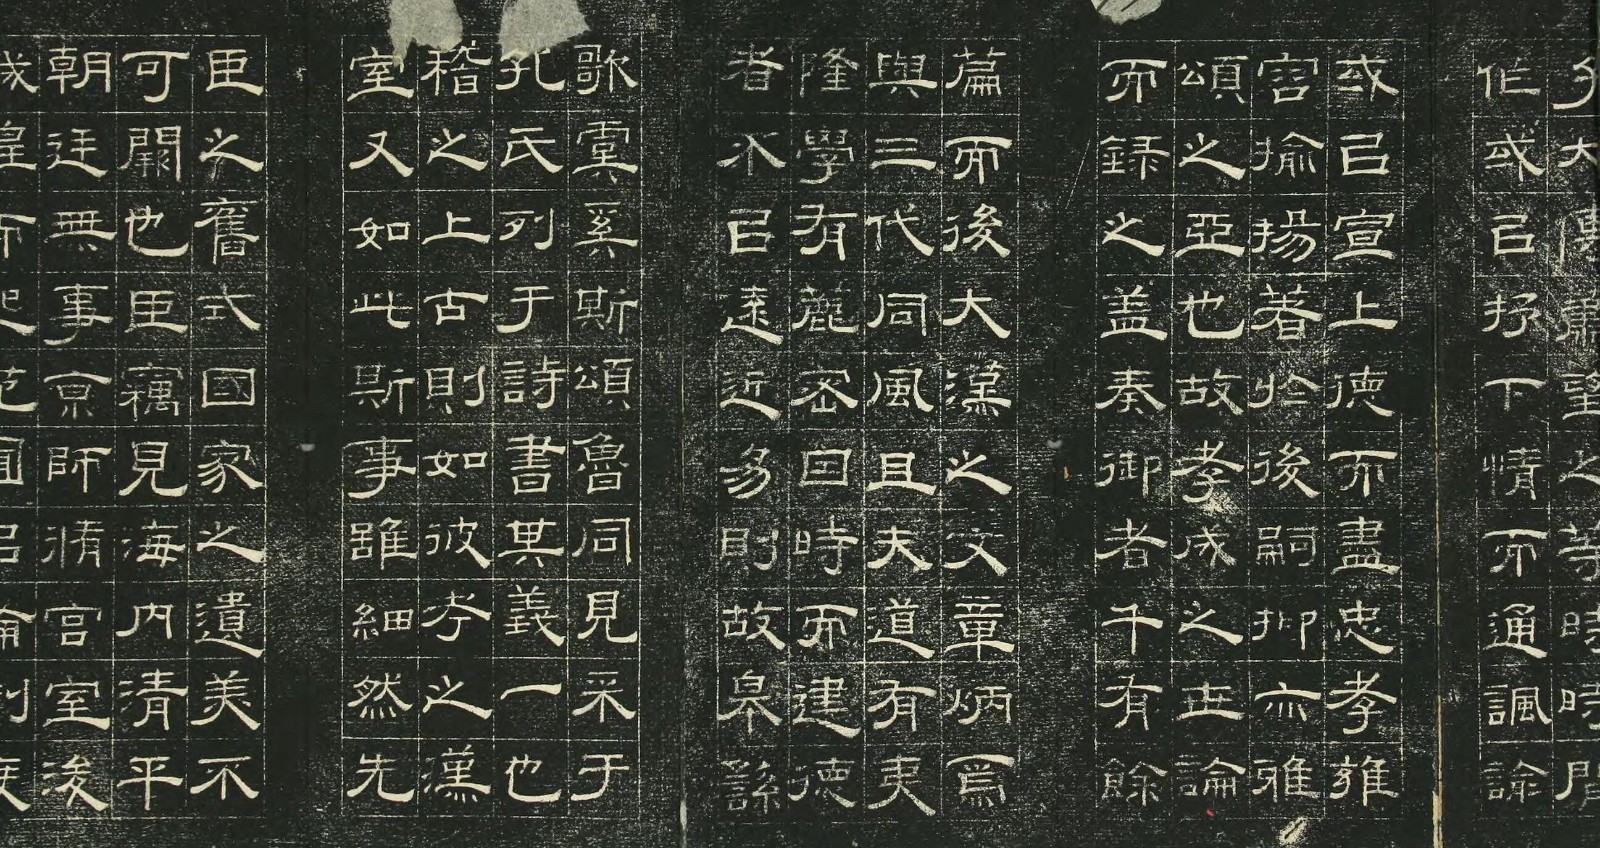 大傅蕭望之等時時間
作或㠯抒下情而通諷諭
或㠯宣上德而盡忠孝雍
容揄揚著於後嗣抑亦雅
頌之亞也故孝成之世論
而錄之蓋奏御者千有餘
篇而後大漢之文章炳焉
與三代同風且夫道有夷
隆學有麤密因時而建德
者不㠯遠近易則故皋繇
歌虞奚斯頌魯同見采于
孔氏列于詩書其義一也
稽之上古則如彼考之漢
室又如此斯事雖細然先
臣之舊式國家之遺美不
可闕也臣竊見海內清平
朝廷無事京師脩宮室浚
城隍而起苑囿㠯